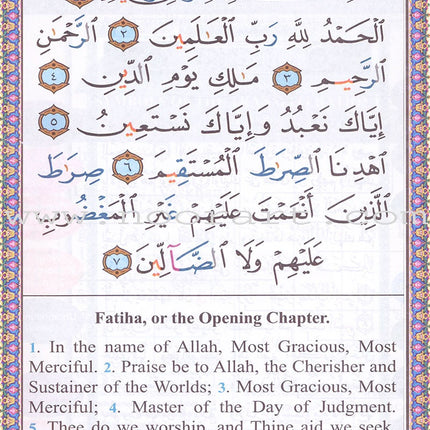 ٱلْحَمْدُ لِلَّهِ رَبِّ ٱلْعَـٰلَمِينَ ٢ ٱلرَّحْمَـٰنِ
ٱلرَّحِيمِ ٣ مَـٰلِكِ يَوْمِ ٱلدِّينِ ٤
إِيَّاكَ نَعْبُدُ وَإِيَّاكَ نَسْتَعِينُ ٥
ٱهْدِنَا ٱلصِّرَٰطَ ٱلْمُسْتَقِيمَ ٦ صِرَٰطَ
ٱلَّذِينَ أَنْعَمْتَ عَلَيْهِمْ غَيْرِ ٱلْمَغْضُوبِ
عَلَيْهِمْ وَلَا ٱلضَّآلِّينَ ٧
Fatiha, or the Opening Chapter.
1. In the name of Allah, Most Gracious, Most
Merciful. 2. Praise be to Allah, the Cherisher and
Sustainer of the Worlds; 3. Most Gracious, Most
Merciful; 4. Master of the Day of Judgment.
5. Thee do we worship, and Thine aid we seek.